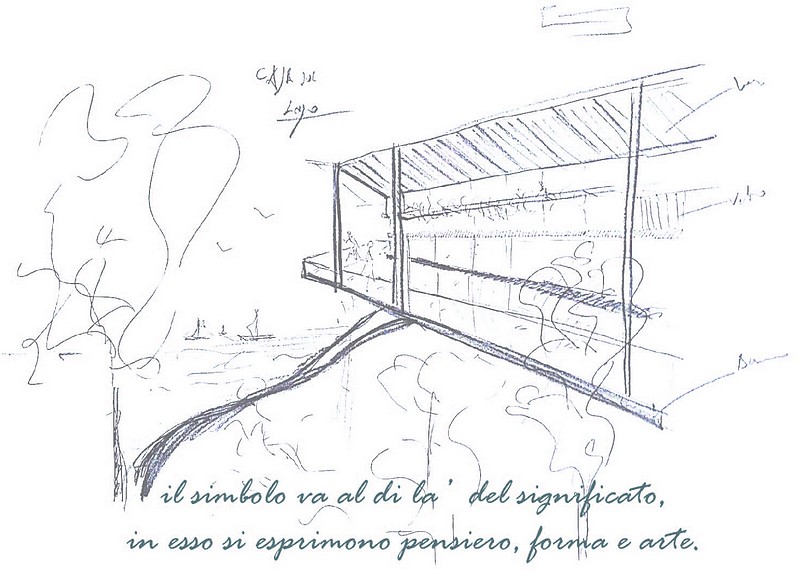 CASA sul
Lago
il simbolo va al di la' del significato,
in esso si esprimono pensiero, forma e arte.